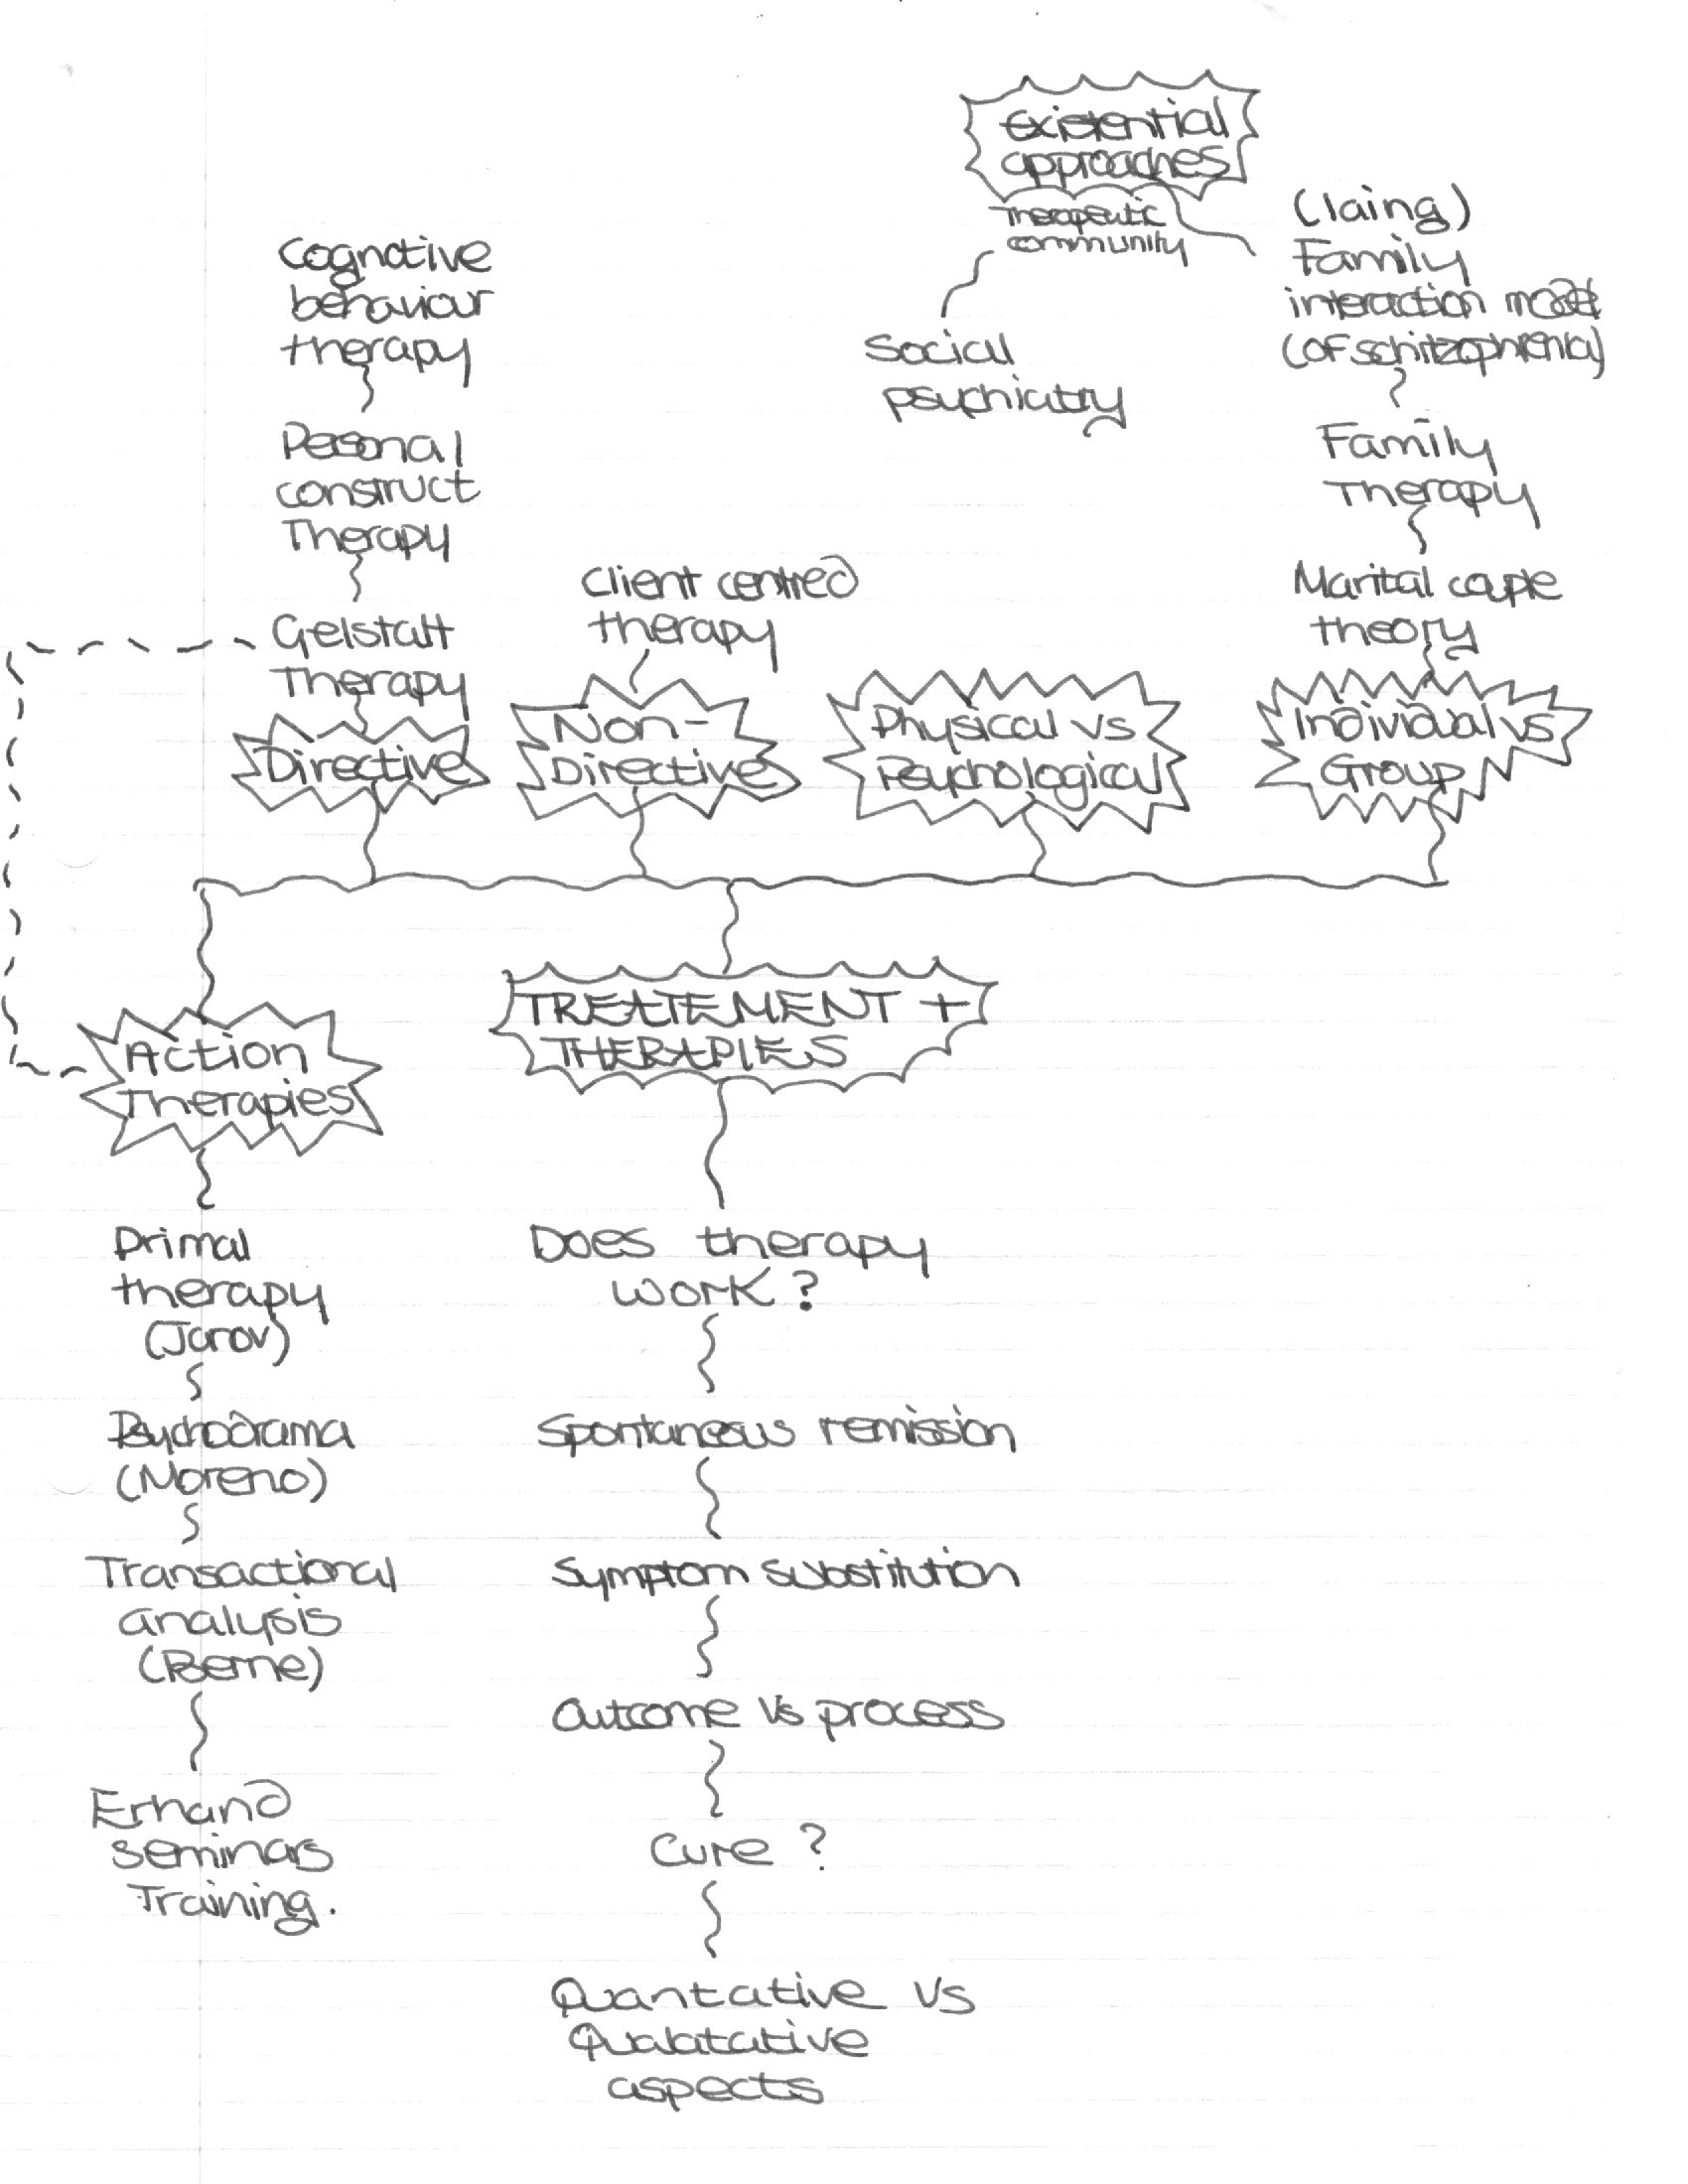 Existential
approaches
Therapeutic
community
(laing)
Family
interaction model
(of schitzophrenia)
Social
psychiatry
Family
Therapy
Marital couple
theory
Cognotive
behaviour
therapy
Personal
construct
Therapy
Gelstalt
Therapy
Client centred
therapy
Directive
Non-
Directive
Physical vs
Psychological
Individual vs
Group
TREATEMENT +
THERAPIES
Action
Therapies
Primal
therapy
(Janov)
Psychodrama
(Moreno)
Transactional
analysis
(Berne)
Erhand
seminars
Training.
Does therapy
work?
Spontaneous remission
Symptom substitution
Outcome vs process
Cure ?
Quantative vs
Qualatative
aspects